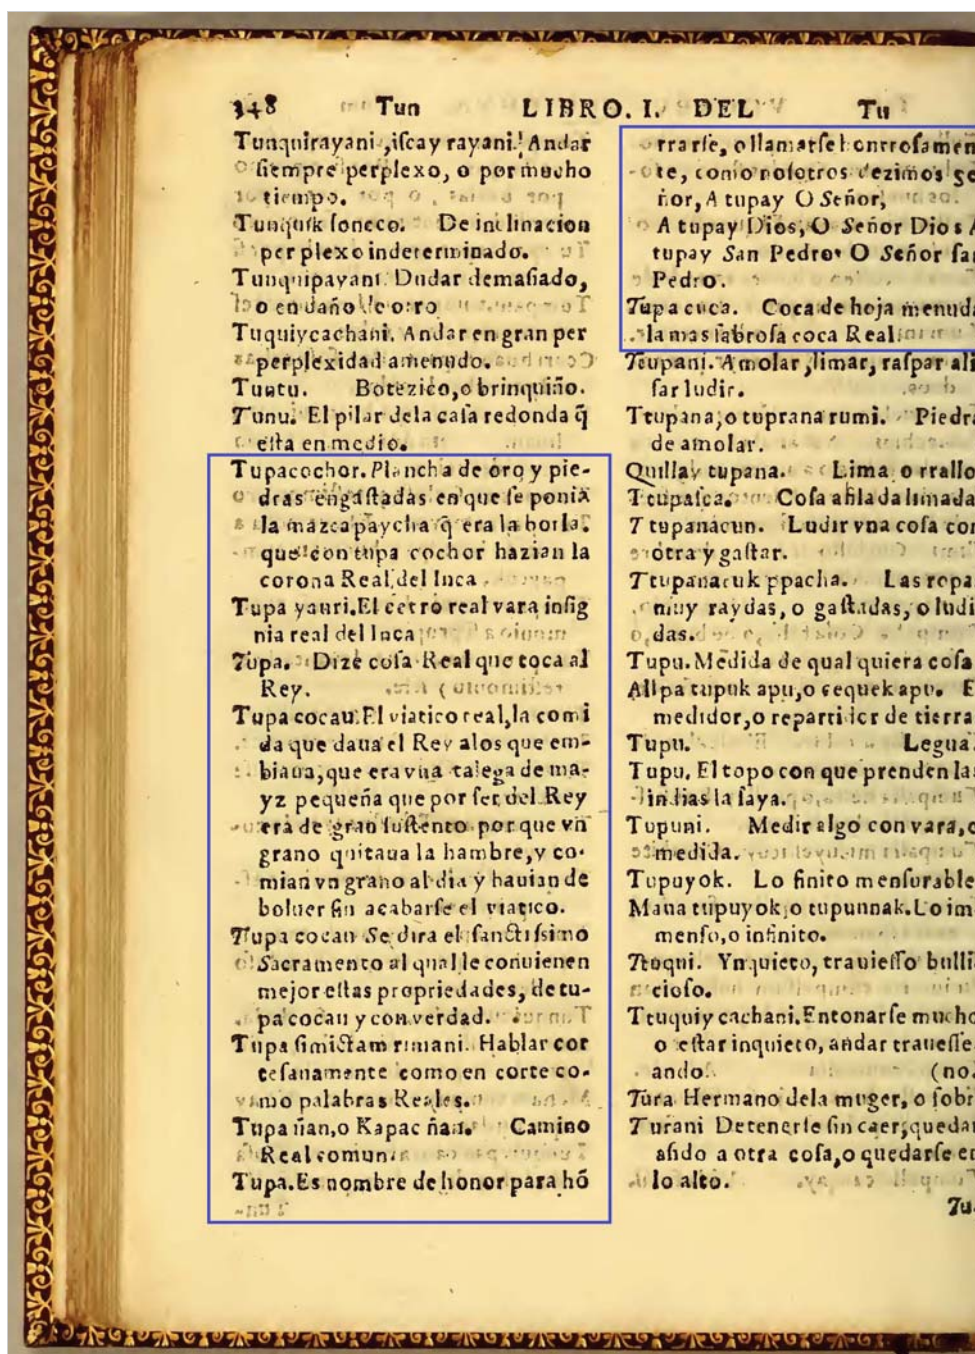 348 Tun LIBRO. I. DEL Tu
Tunquirayani, iſcay rayani. Andar
ſiempre perplexo, o por mucho
tiempo.
Tunquik ſoncco. De inclinacion
perplexo indeterminado.
Tunquipayani. Dudar demaſiado,
o en daño de otro
Tuquiycachani. Andar en gran per
perplexidad amenudo.
Tuutu. Botezico, o brinquiño.
Tunu. El pilar dela caſa redonda q̃
eſta en medio.
Tupacochor. Plancha de oro y pie-
dras engaſtadas en que ſe poniã
la mazcapaycha q̃ era la borla.
que con tupa cochor hazian la
corona Real del Inca
Tupa yauri. El cetro real vara inſig
nia real del Inca
Tupa. Dize coſa Real que toca al
Rey.
Tupa cocau. El viatico real, la comi
da que daua el Rey alos que em-
biaua, que era vna talega de ma-
yz pequeña que por ſer del Rey
era de gran ſuſtento por que vn
grano quitaua la hambre, y co-
mian vn grano al dia y hauian de
boluer ſin acabarſe el viatico.
Tupa cocau Se dira el ſanctiſsimo
Sacramento al qual le conuienen
mejor eſtas propriedades, de tu-
pa cocau y con verdad.
Tupa ſimictam rimani. Hablar cor
teſanamente como en corte co-
mo palabras Reales.
Tupa ñan, o Kapac ñan. Camino
Real comun
Tupa. Es nombre de honor para hõ
rrarſe, o llamarſe honrroſamen
te, como noſotros dezimos ſe
ñor, A tupay O Señor,
A tupay Dios, O Señor Dios A
tupay San Pedro. O Señor ſan
Pedro.
Tupa cuca. Coca de hoja menuda
la mas ſabroſa coca Real
Ttupani. Amolar, limar, raſpar ali
ſar ludir.
Ttupana, o tuprana rumi. Piedra
de amolar.
Quillay tupana. Lima o rrallo
Ttupaſca. Coſa afilada limada
Ttupanacun. Ludir vna coſa con
otra y gaſtar.
Ttupanacuk ppacha. Las ropa
muy raydas, o gaſtadas, o ludi
das.
Tupu. Medida de qual quiera coſa
Allpa tupuk apu, o cequek apu. E
medidor, o repartidor de tierra
Tupu. Legua.
Tupu. El topo con que prenden las
indias la ſaya.
Tupuni. Medir algo con vara, o
medida.
Tupuyok. Lo finito menſurable
Mana tupuyok, o tupunnak. Lo im
menſo, o infinito.
Ttuqui. Ynquieto, trauieſſo bulli
cioſo.
Ttuquiy cachani. Entonarſe mucho
o eſtar inquieto, andar traueſſe
ando. (no.
Tura Hermano dela muger, o ſobri
Turani Detenerſe ſin caer, quedar
aſido a otra coſa, o quedarſe en
lo alto.
Tu-